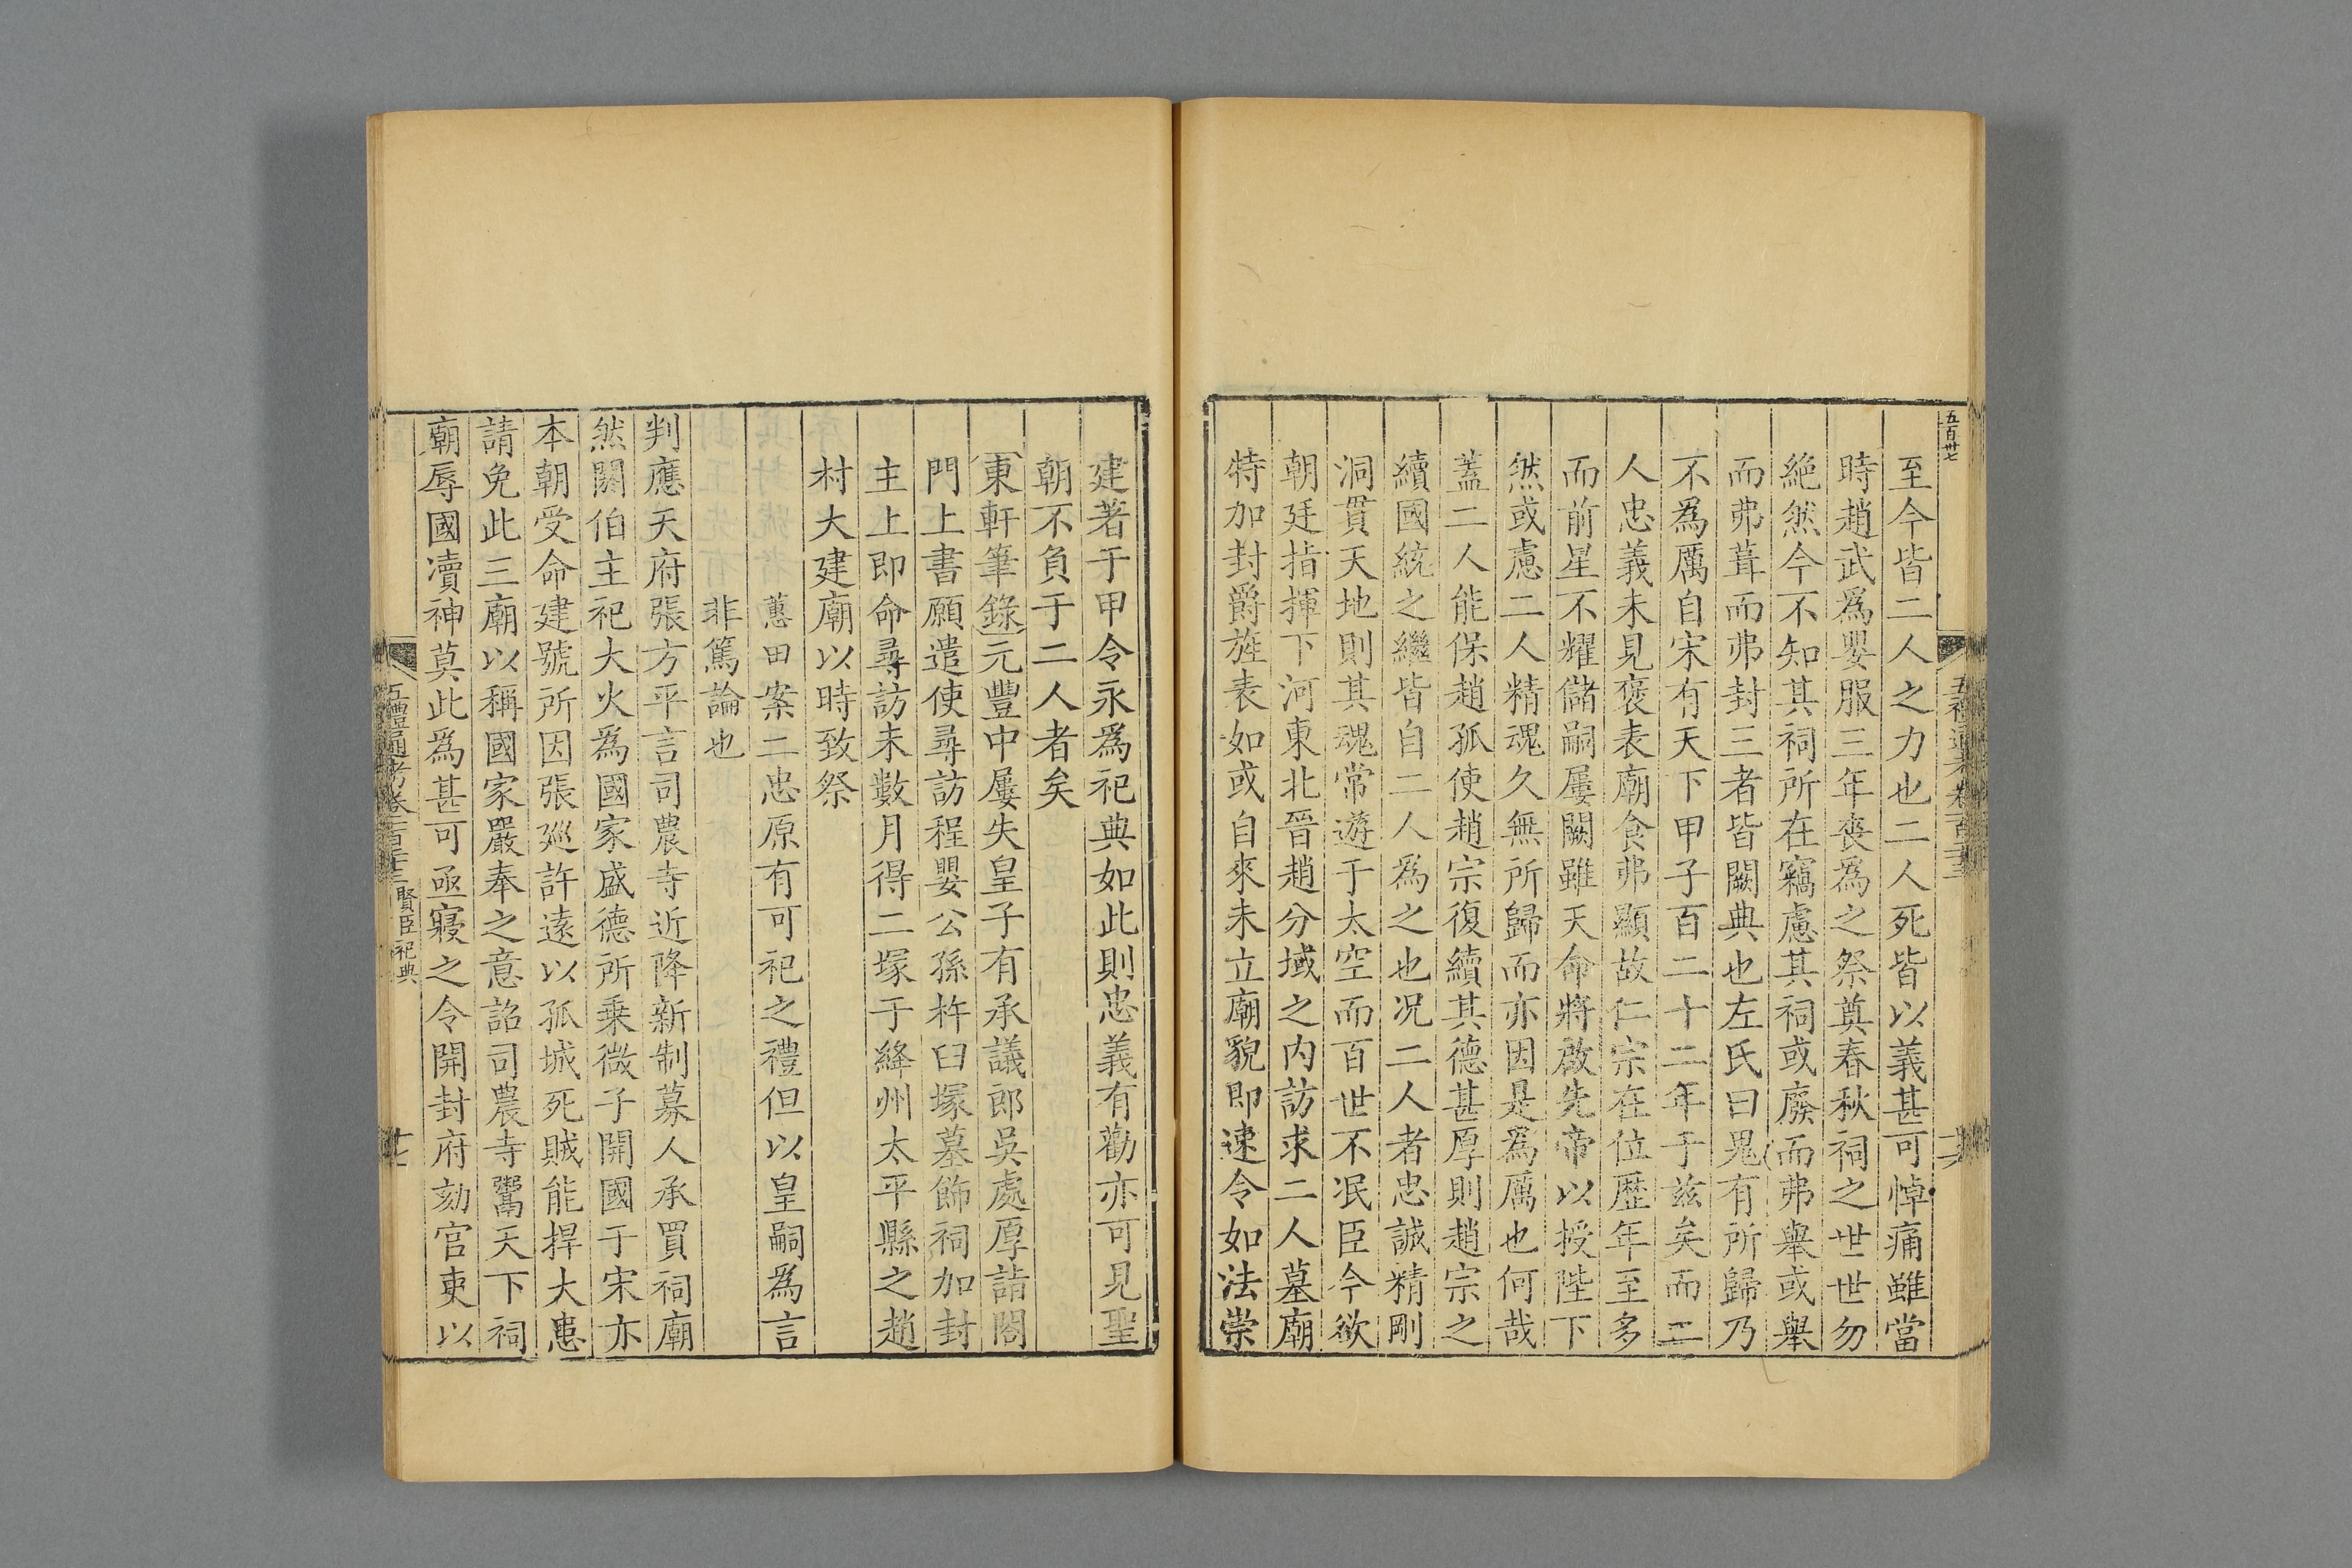 五百卅七
至今皆二人之力也二人死皆以義甚可悼痛雖當
時趙武爲嬰服三年喪爲之祭奠春秋祠之世世勿
絶然今不知其祠所在竊慮其祠或廢而弗舉或舉
而弗葺而弗封三者皆闕典也左氏曰鬼有所歸乃
不爲厲自宋有天下甲子百二十二年于兹矣而二
人忠義未見褒表廟食弗顯故仁宗在位歷年至多
而前星不耀儲嗣屢闕雖天命將啟先帝以授陛下
然或慮二人精魂久無所歸而亦因是爲厲也何哉
蓋二人能保趙孤使趙宗復續其德甚厚則趙宗之
續國統之繼皆自二人爲之也况二人者忠誠精剛
洞貫天地則其魂常遊于太空而百世不泯臣今欲
朝廷指揮下河東北晉趙分域之内訪求二人墓廟
特加封爵旌表如或自來未立廟貌即速令如法崇
建著于甲令永爲祀典如此則忠義有勸亦可見聖
朝不負于二人者矣
東軒筆錄元豐中屢失皇子有承議郎吳處厚詣閤
門上書願遣使尋訪程嬰公孫杵臼塚墓飾祠加封
主上即命尋訪未數月得二塚于絳州太平縣之趙
村大建廟以時致祭
蕙田案二忠原有可祀之禮但以皇嗣爲言
非篤論也
判應天府張方平言司農寺近降新制募人承買祠廟
然閼伯主祀大火爲國家盛德所乗微子開國于宋亦
本朝受命建號所因張廵許遠以孤城死賊能捍大患
請免此三廟以稱國家嚴奉之意詔司農寺鬻天下祠
廟辱國瀆神莫此爲甚可亟寢之令開封府劾官吏以
五禮通考卷一百二十三 賢臣祀典 十七